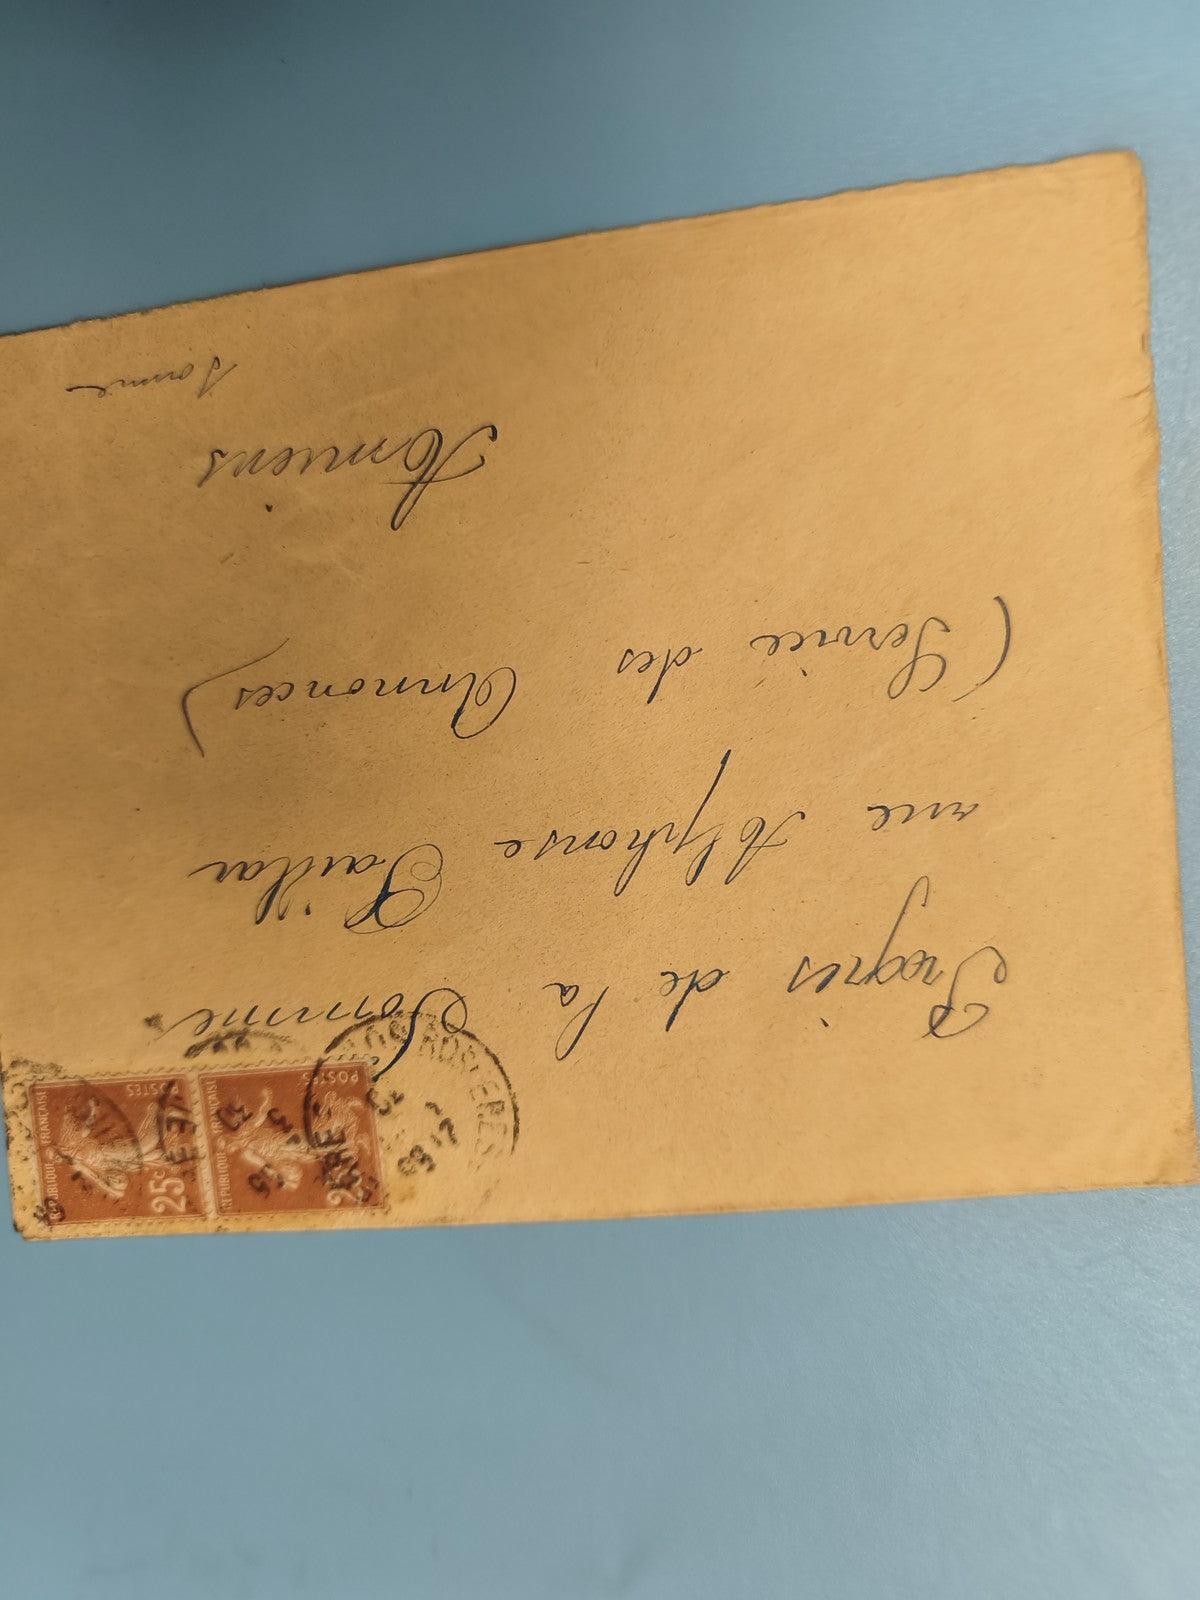 Progrès de la Somme
rue Alphonse Paillar
(Service des Annonces)
Amiens
Somme
REPUBLIQUE FRANÇAISE
POSTES
25c
REPUBLIQUE FRANÇAISE
POSTES
25c